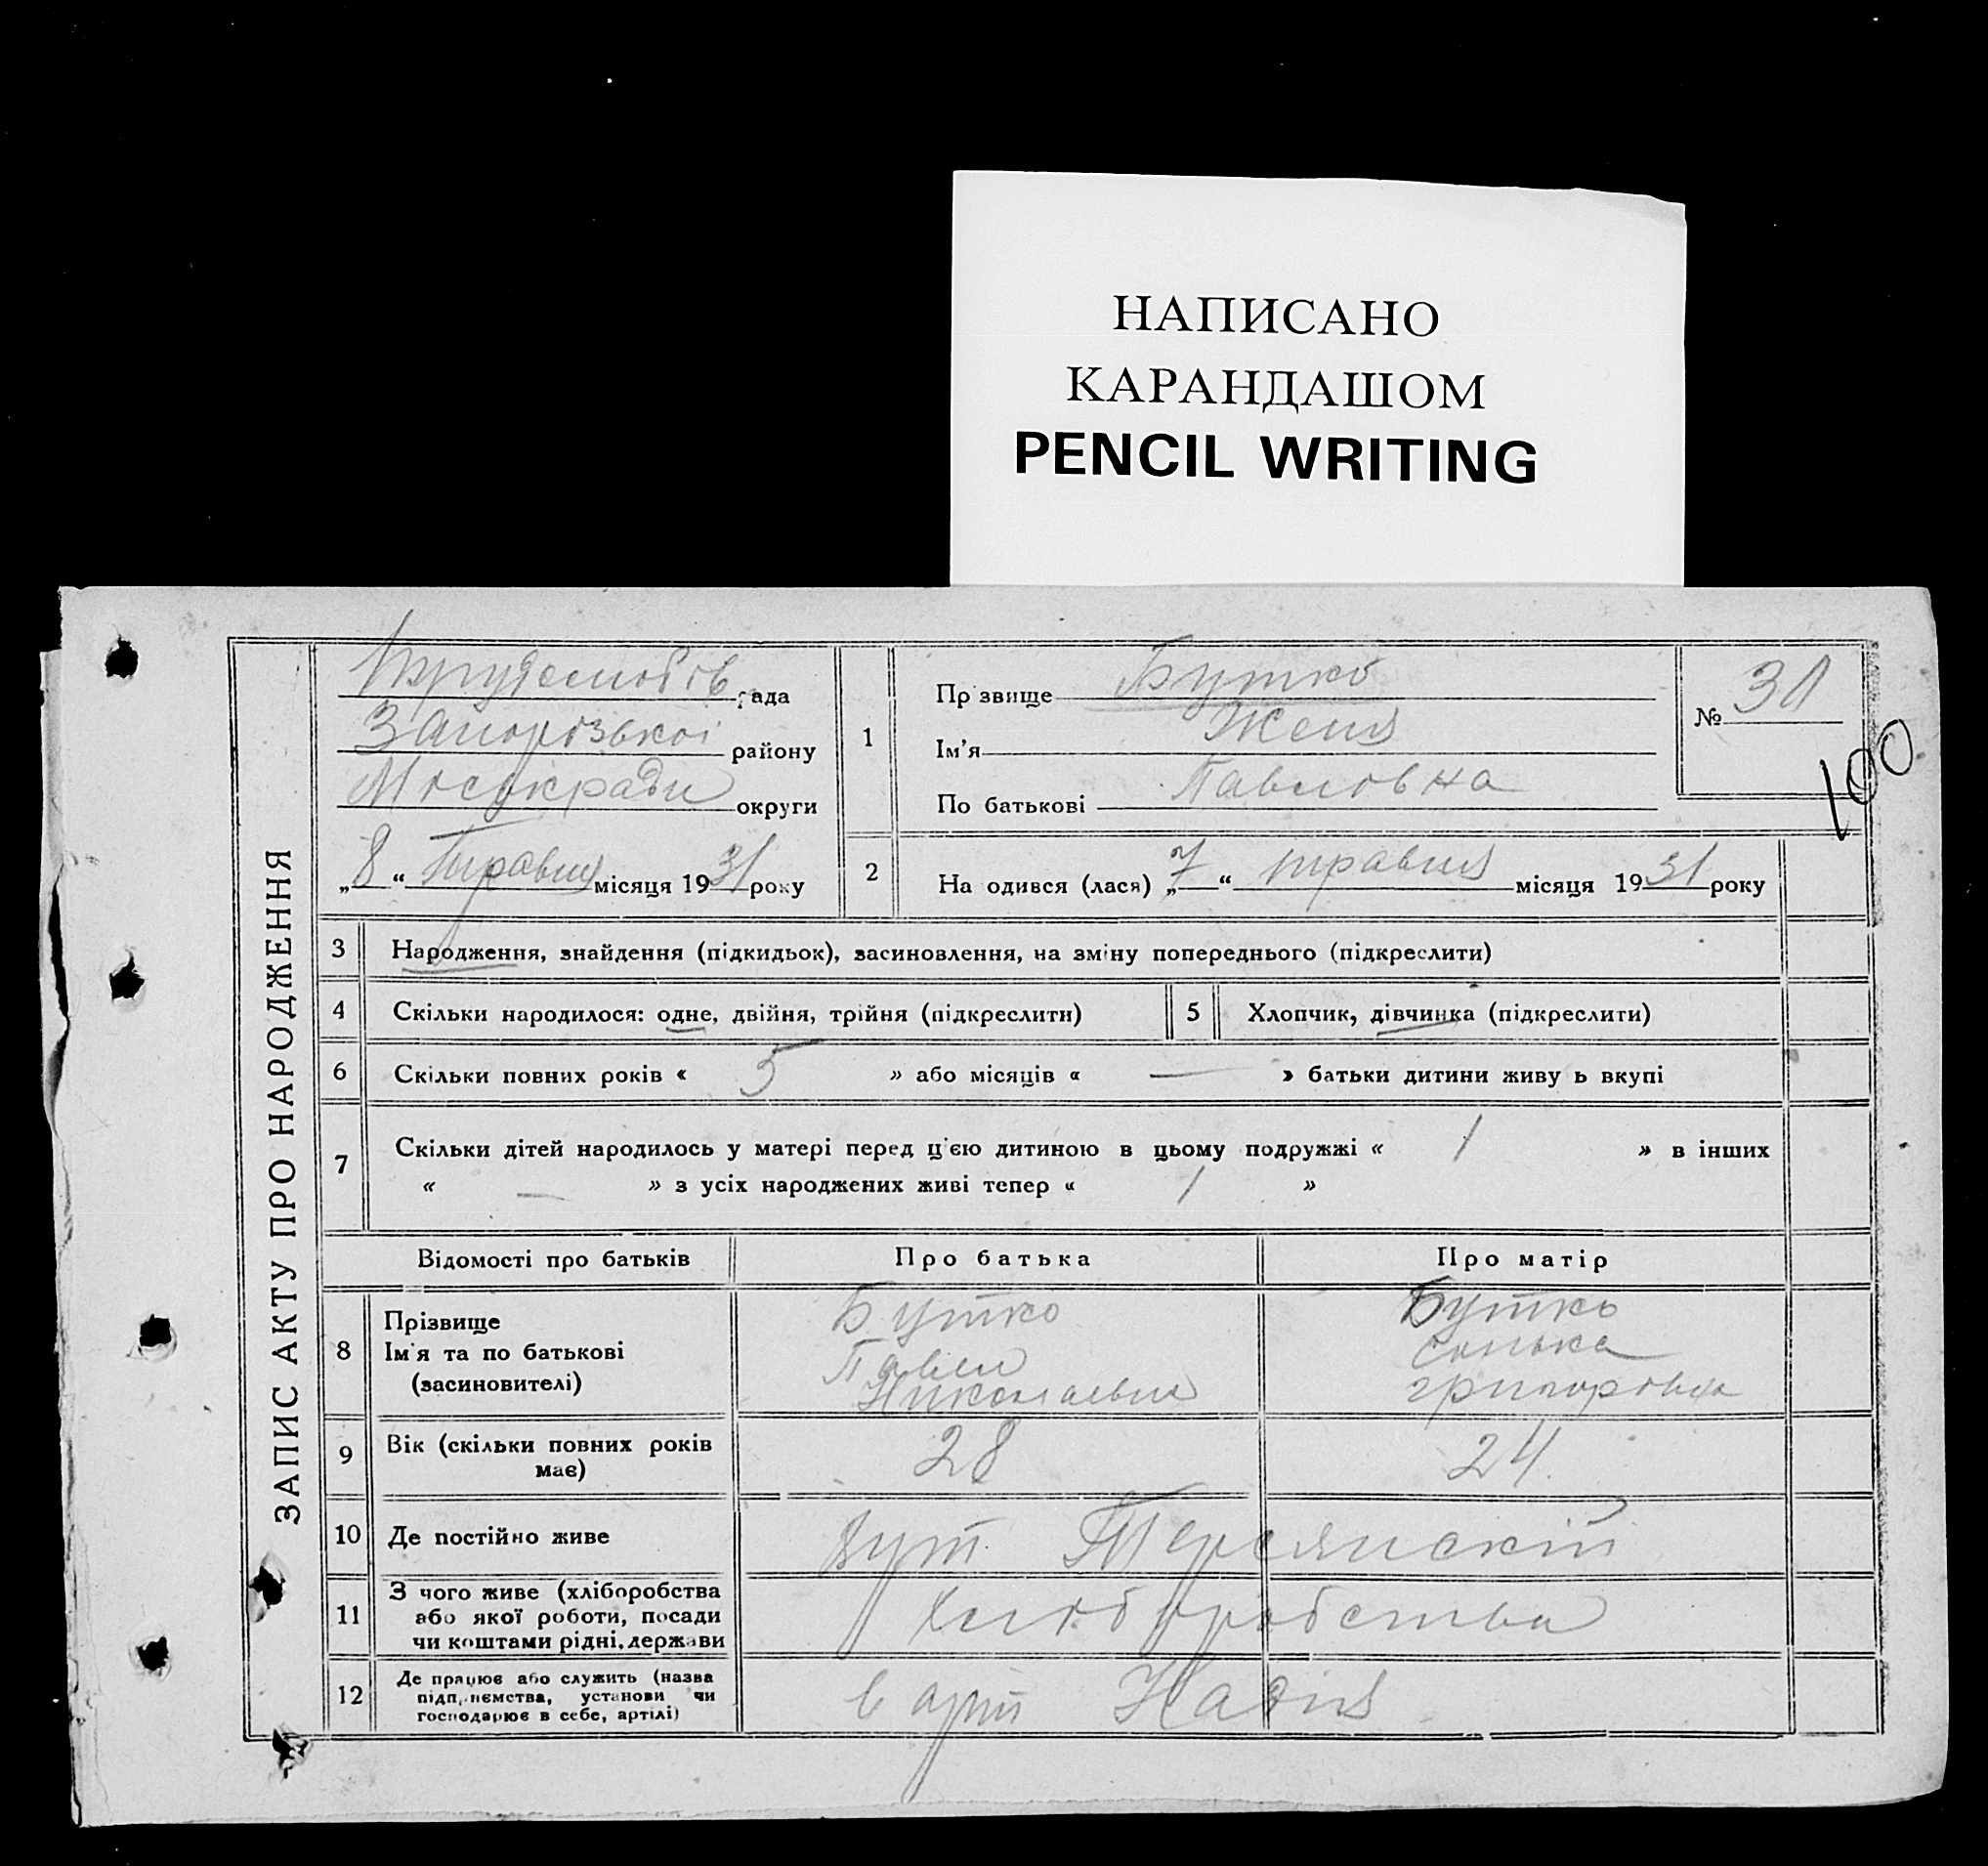 НАПИСАНО
КАРАНДАШОМ
PENCIL WRITING
ЗАПИС АКТУ ПРО НАРОДЖЕННЯ
Трудолюбів рада
Запорозької району
Міськради округи
„8“ Травня місяця 1931 року
1
Прізвище Бутко
Ім'я Женя
По батькові Павловна
№ 31
100
2 На одився (лася) „7“ травня місяця 1931 року
3 Народження, знайдення (підкидьок), засиновлення, на зміну попереднього (підкреслити)
4 Скільки народилося: одне, двійня, трійня (підкреслити)
5 Хлопчик, дівчинка (підкреслити)
6 Скільки повних років « 5 » або місяців « — » батьки дитини живу ь вкупі
7 Скільки дітей народилось у матері перед ц'єю дитиною в цьому подружжі « 1 » в інших
« — » з усіх народжених живі тепер « 1 »
Відомості про батьків Про батька Про матір
8 Прізвище Бутко Бутко
Ім'я та по батькові Павел
(засиновителі) Николаевич григоровна
9 Вік (скільки повних років має) 28 24
10 Де постійно живе хут.
11 З чого живе (хліборобства або якої роботи, посади чи коштами рідні, держави хліборобства
12 Де працює або служить (назва підприємства, установи чи господарює в себе, артілі) в арт Надія